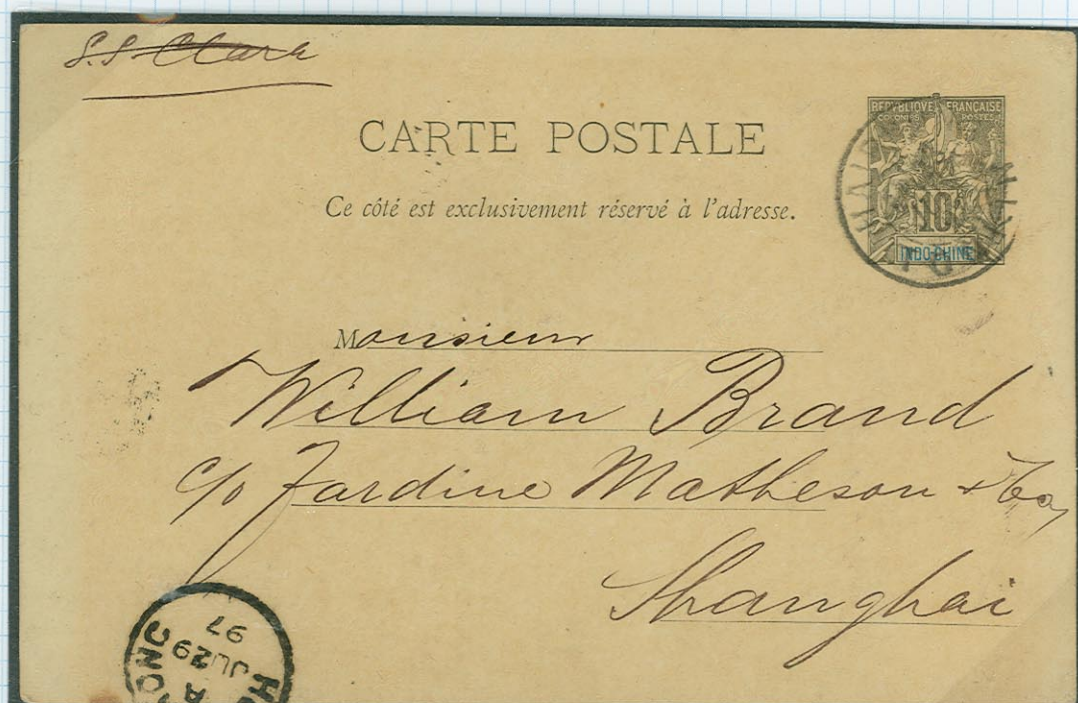 S.S. Clara
CARTE POSTALE
Ce côté est exclusivement réservé à l'adresse.
REPVBLIQVE FRANÇAISE
COLONIES POSTES
10
INDO-CHINE
Monsieur
William Brand
c/o Jardine Matheson & Co,
Shanghai
A
JU 29
97